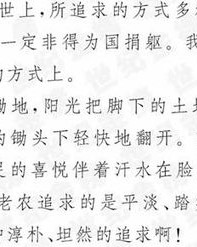 世上,所追求的方式多
一定非得为国捐躯。我
的方式上。
锄地,阳光把脚下的土
的锄头下轻快地翻开。
足的喜悦伴着汗水在脸
老农追求的是平淡、踏
淳朴、坦然的追求啊!